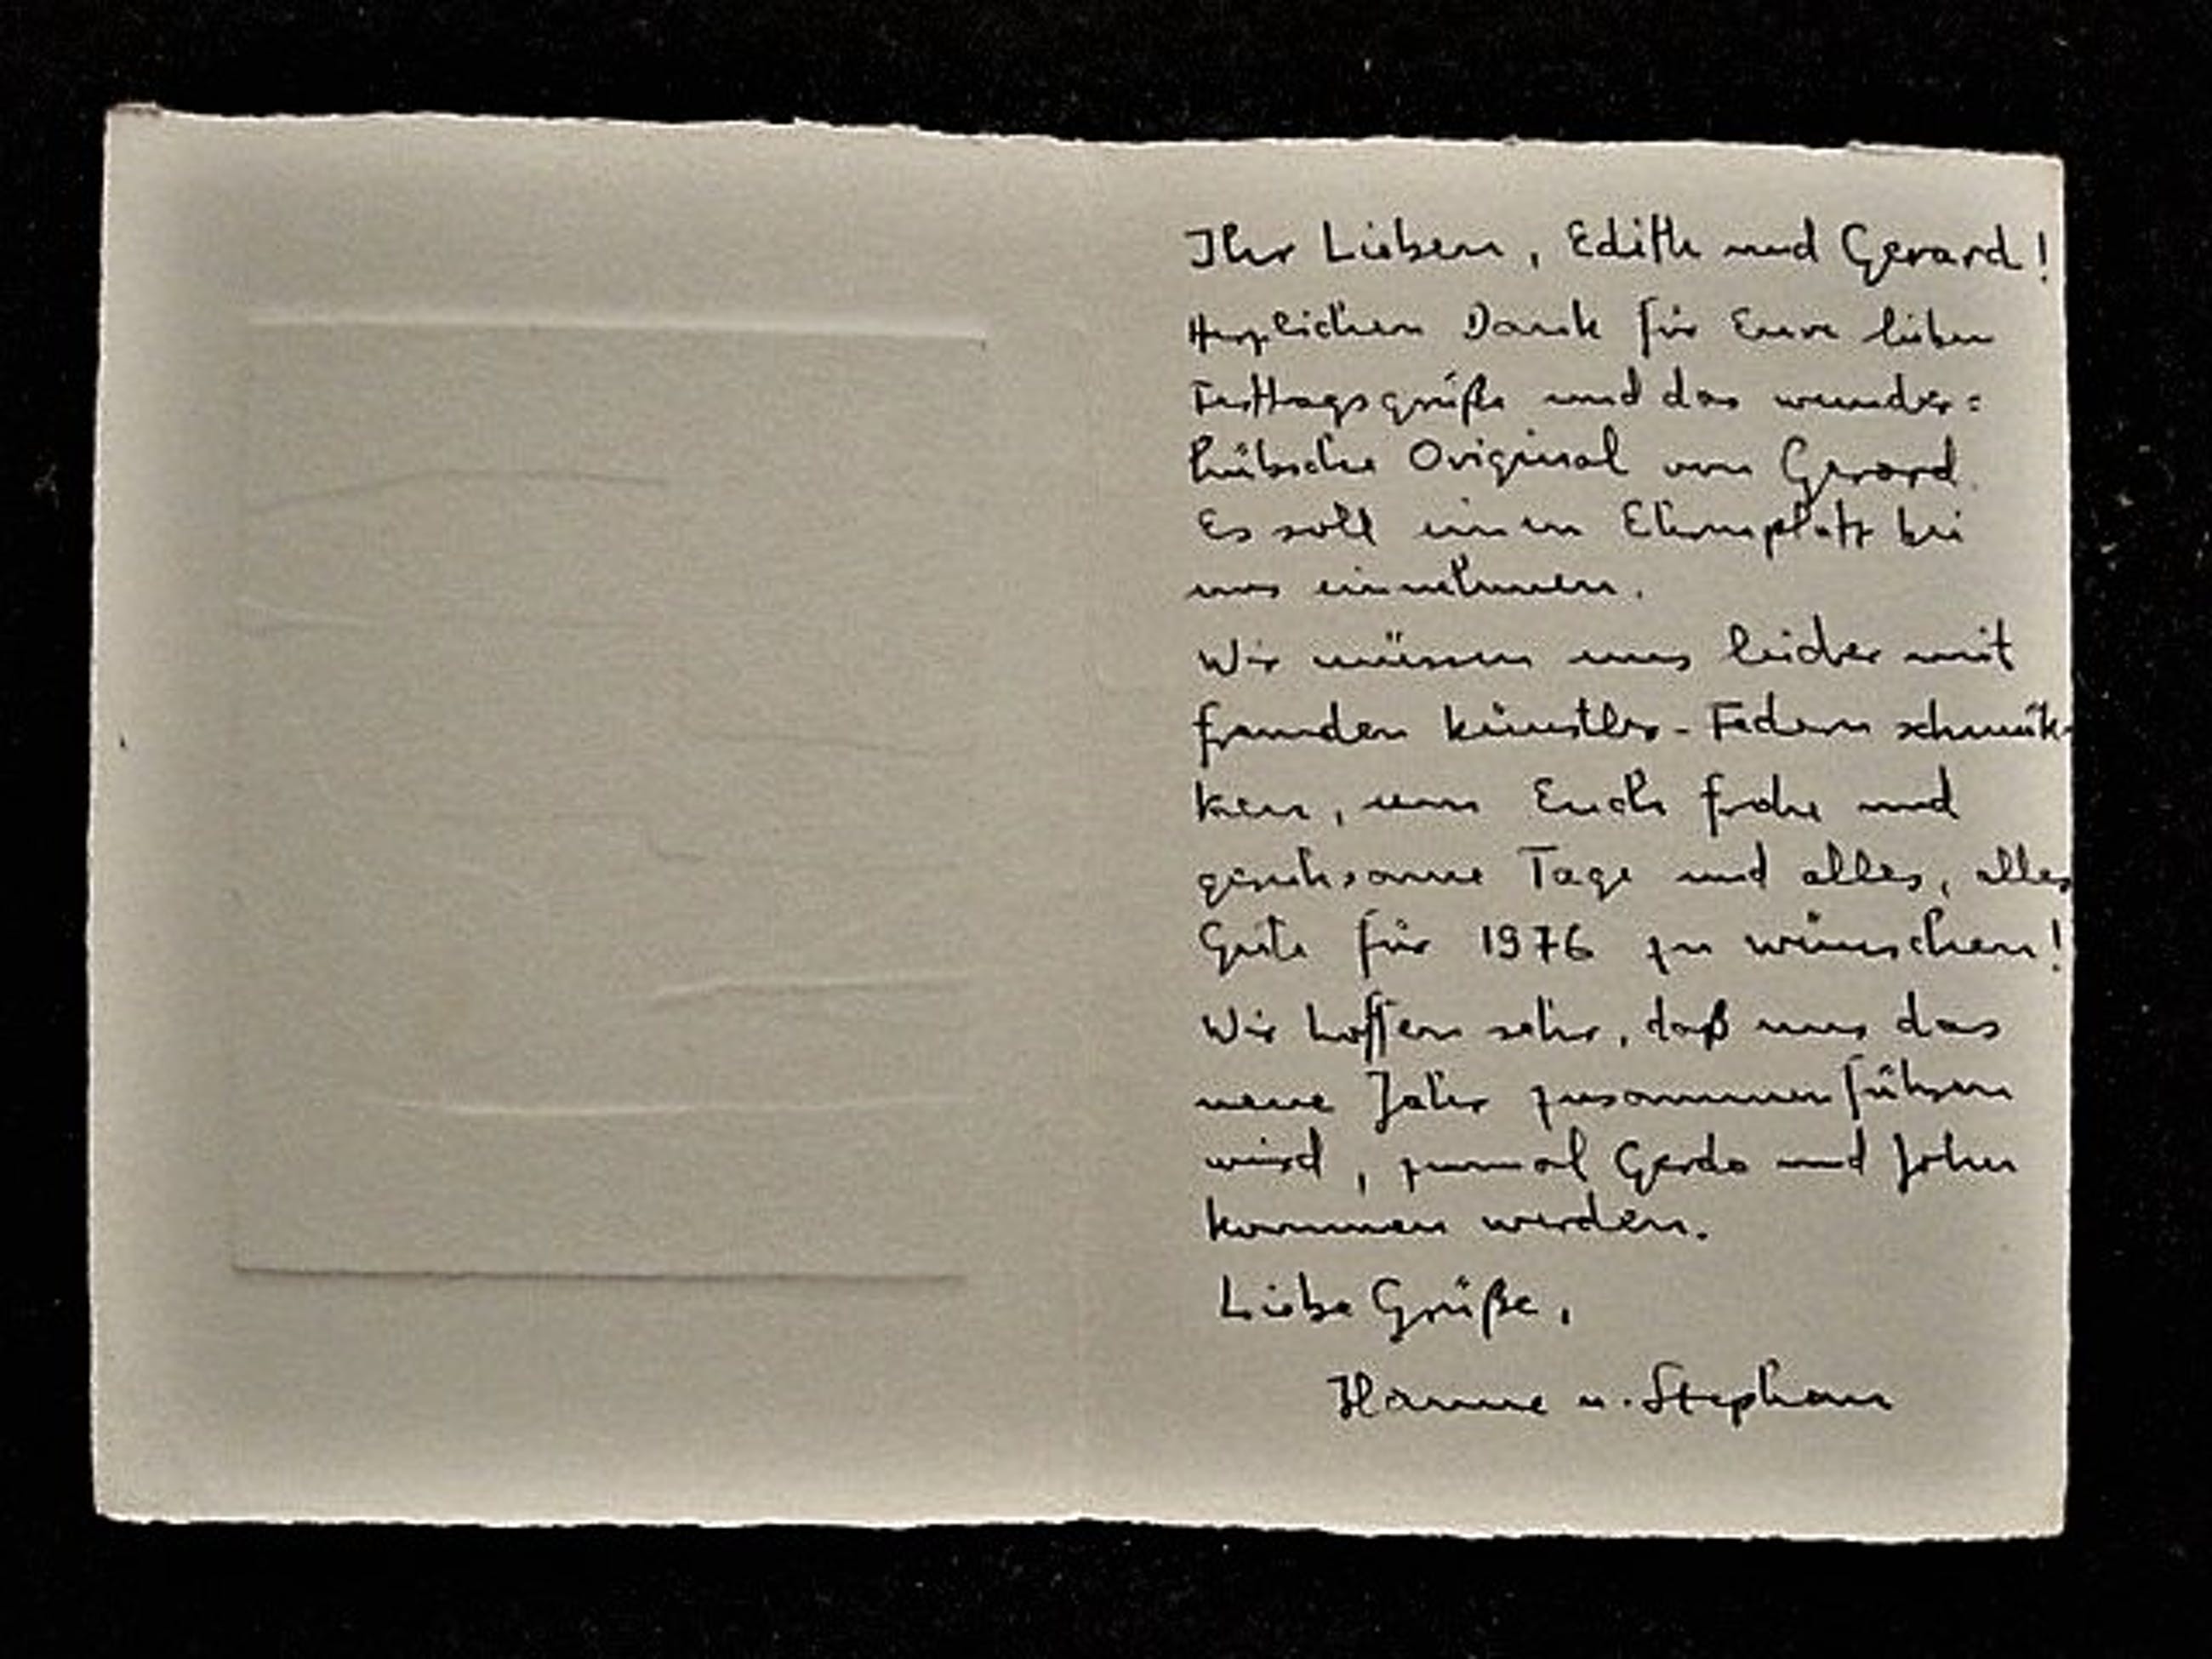 Ihr Lieben, Edith und Gerard!
Herzlichen Dank für Eure lieben
Festtagsgrüße und das wunder=
hübsche Original von Gerard.
Es soll einen Ehrenplatz bei
uns einnehmen.
Wir müssen uns leider mit
fremden Künstler-Federn schmük-
ken, um Euch frohe und
geruhsame Tage und alles, alles
Gute für 1976 zu wünschen!
Wir hoffen sehr, daß uns das
neue Jahr zusammenführen
wird, zumal Gerda und John
kommen werden.
Liebe Grüße,
Hanne u. Stephan